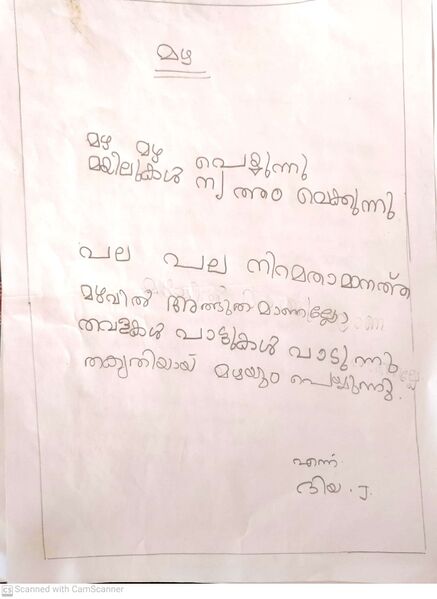 മഴ
മഴ മഴ പെയ്യുന്നു
മയിലുകൾ നൃത്തം വെക്കുന്നു
പല പല നിറമതാമാനത്ത്
മഴവിൽ അത്ഭുതമാണല്ലോ
തവളകൾ പാട്ടുകൾ പാടുന്നു
തകൃതിയായ് മഴയും പെയ്യുന്നു.
എന്ന്
ദിയ . J.
CS Scanned with CamScanner